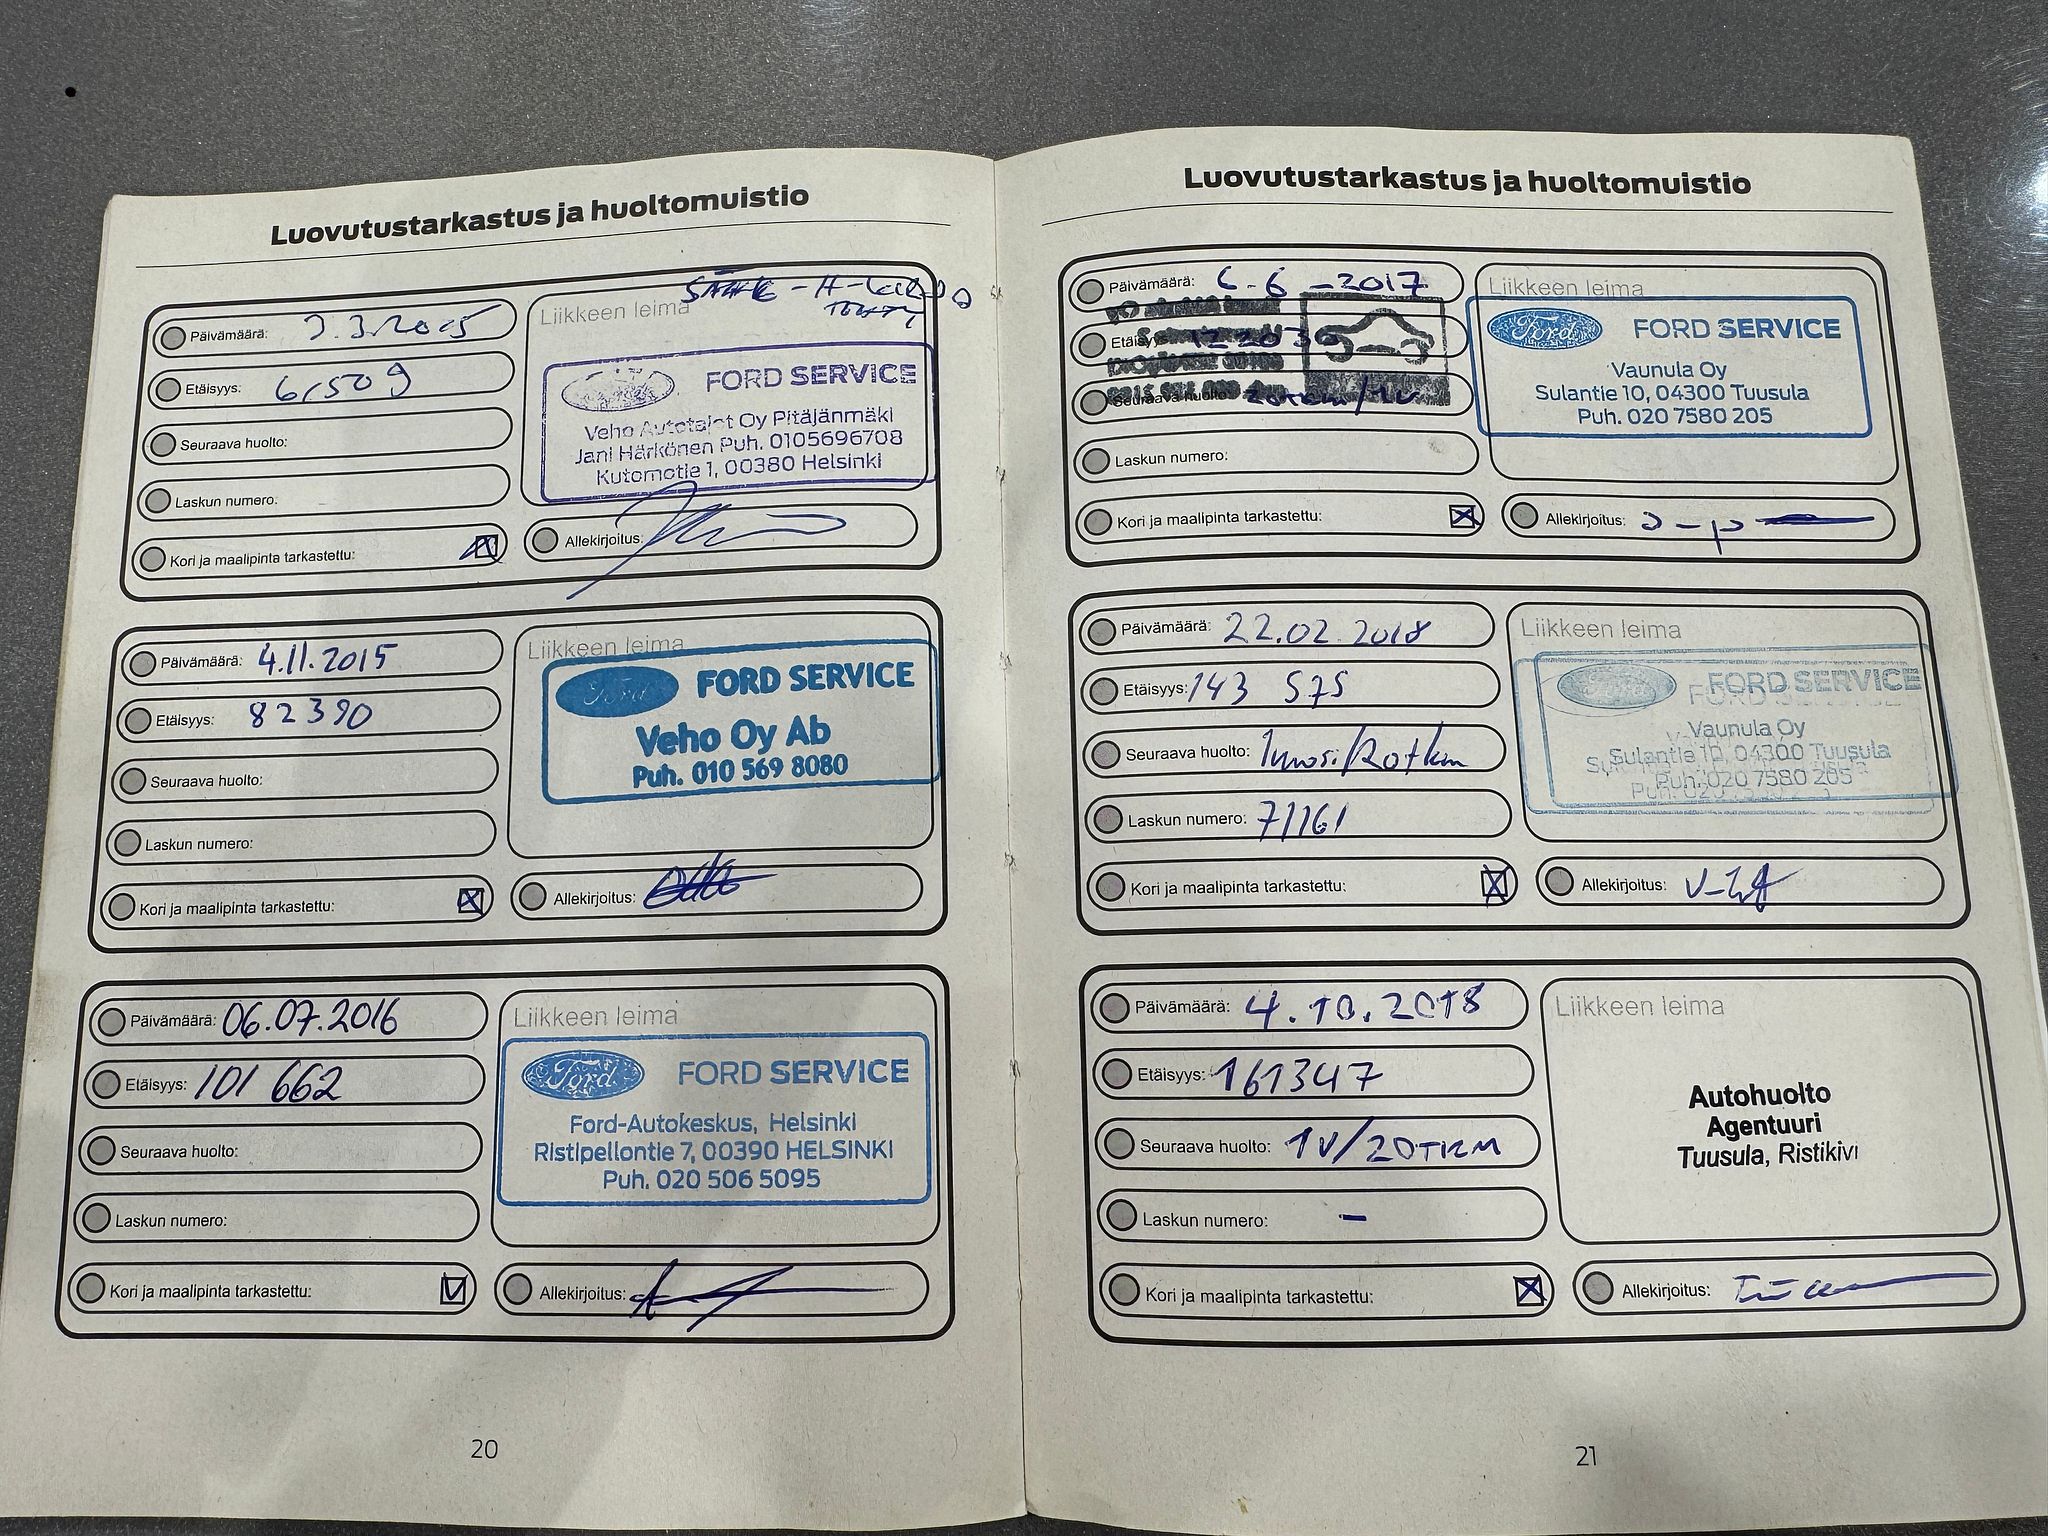 Luovutustarkastus ja huoltomuistio
Päivämäärä: 3.3.2015
Etäisyys: 61509
Seuraava huolto:
Laskun numero:
Kori ja maalipinta tarkastettu:
Liikkeen leima
FORD SERVICE
Veho Autotalot Oy Pitäjänmäki
Jani Härkönen Puh. 0105696708
Kutomotie 1, 00380 Helsinki
Allekirjoitus:
Päivämäärä: 4.11.2015
Etäisyys: 82390
Seuraava huolto:
Laskun numero:
Kori ja maalipinta tarkastettu:
Liikkeen leima
Ford
FORD SERVICE
Veho Oy Ab
Puh. 010 569 8080
Allekirjoitus:
Päivämäärä: 06.07.2016
Etäisyys: 101 662
Seuraava huolto:
Laskun numero:
Kori ja maalipinta tarkastettu:
Liikkeen leima
Ford
FORD SERVICE
Ford-Autokeskus, Helsinki
Ristipellontie 7, 00390 HELSINKI
Puh. 020 506 5095
Allekirjoitus:
20
Luovutustarkastus ja huoltomuistio
Päivämäärä: 6-6-2017
Etäisyys:
Seuraava huolto:
Laskun numero:
Kori ja maalipinta tarkastettu:
Liikkeen leima
Ford
FORD SERVICE
Vaunula Oy
Sulantie 10, 04300 Tuusula
Puh. 020 7580 205
Allekirjoitus:
Päivämäärä: 22.02.2018
Etäisyys: 143 575
Seuraava huolto: 1vuosi/20tkm
Laskun numero: 71161
Kori ja maalipinta tarkastettu:
Liikkeen leima
Ford
FORD SERVICE
Vaunula Oy
Sulantie 10, 04300 Tuusula
Puh. 020 7580 205
Allekirjoitus:
Päivämäärä: 4.10.2018
Etäisyys: 161347
Seuraava huolto: 1V/20TKM
Laskun numero: -
Kori ja maalipinta tarkastettu:
Liikkeen leima
Autohuolto
Agentuuri
Tuusula, Ristikivi
Allekirjoitus:
21